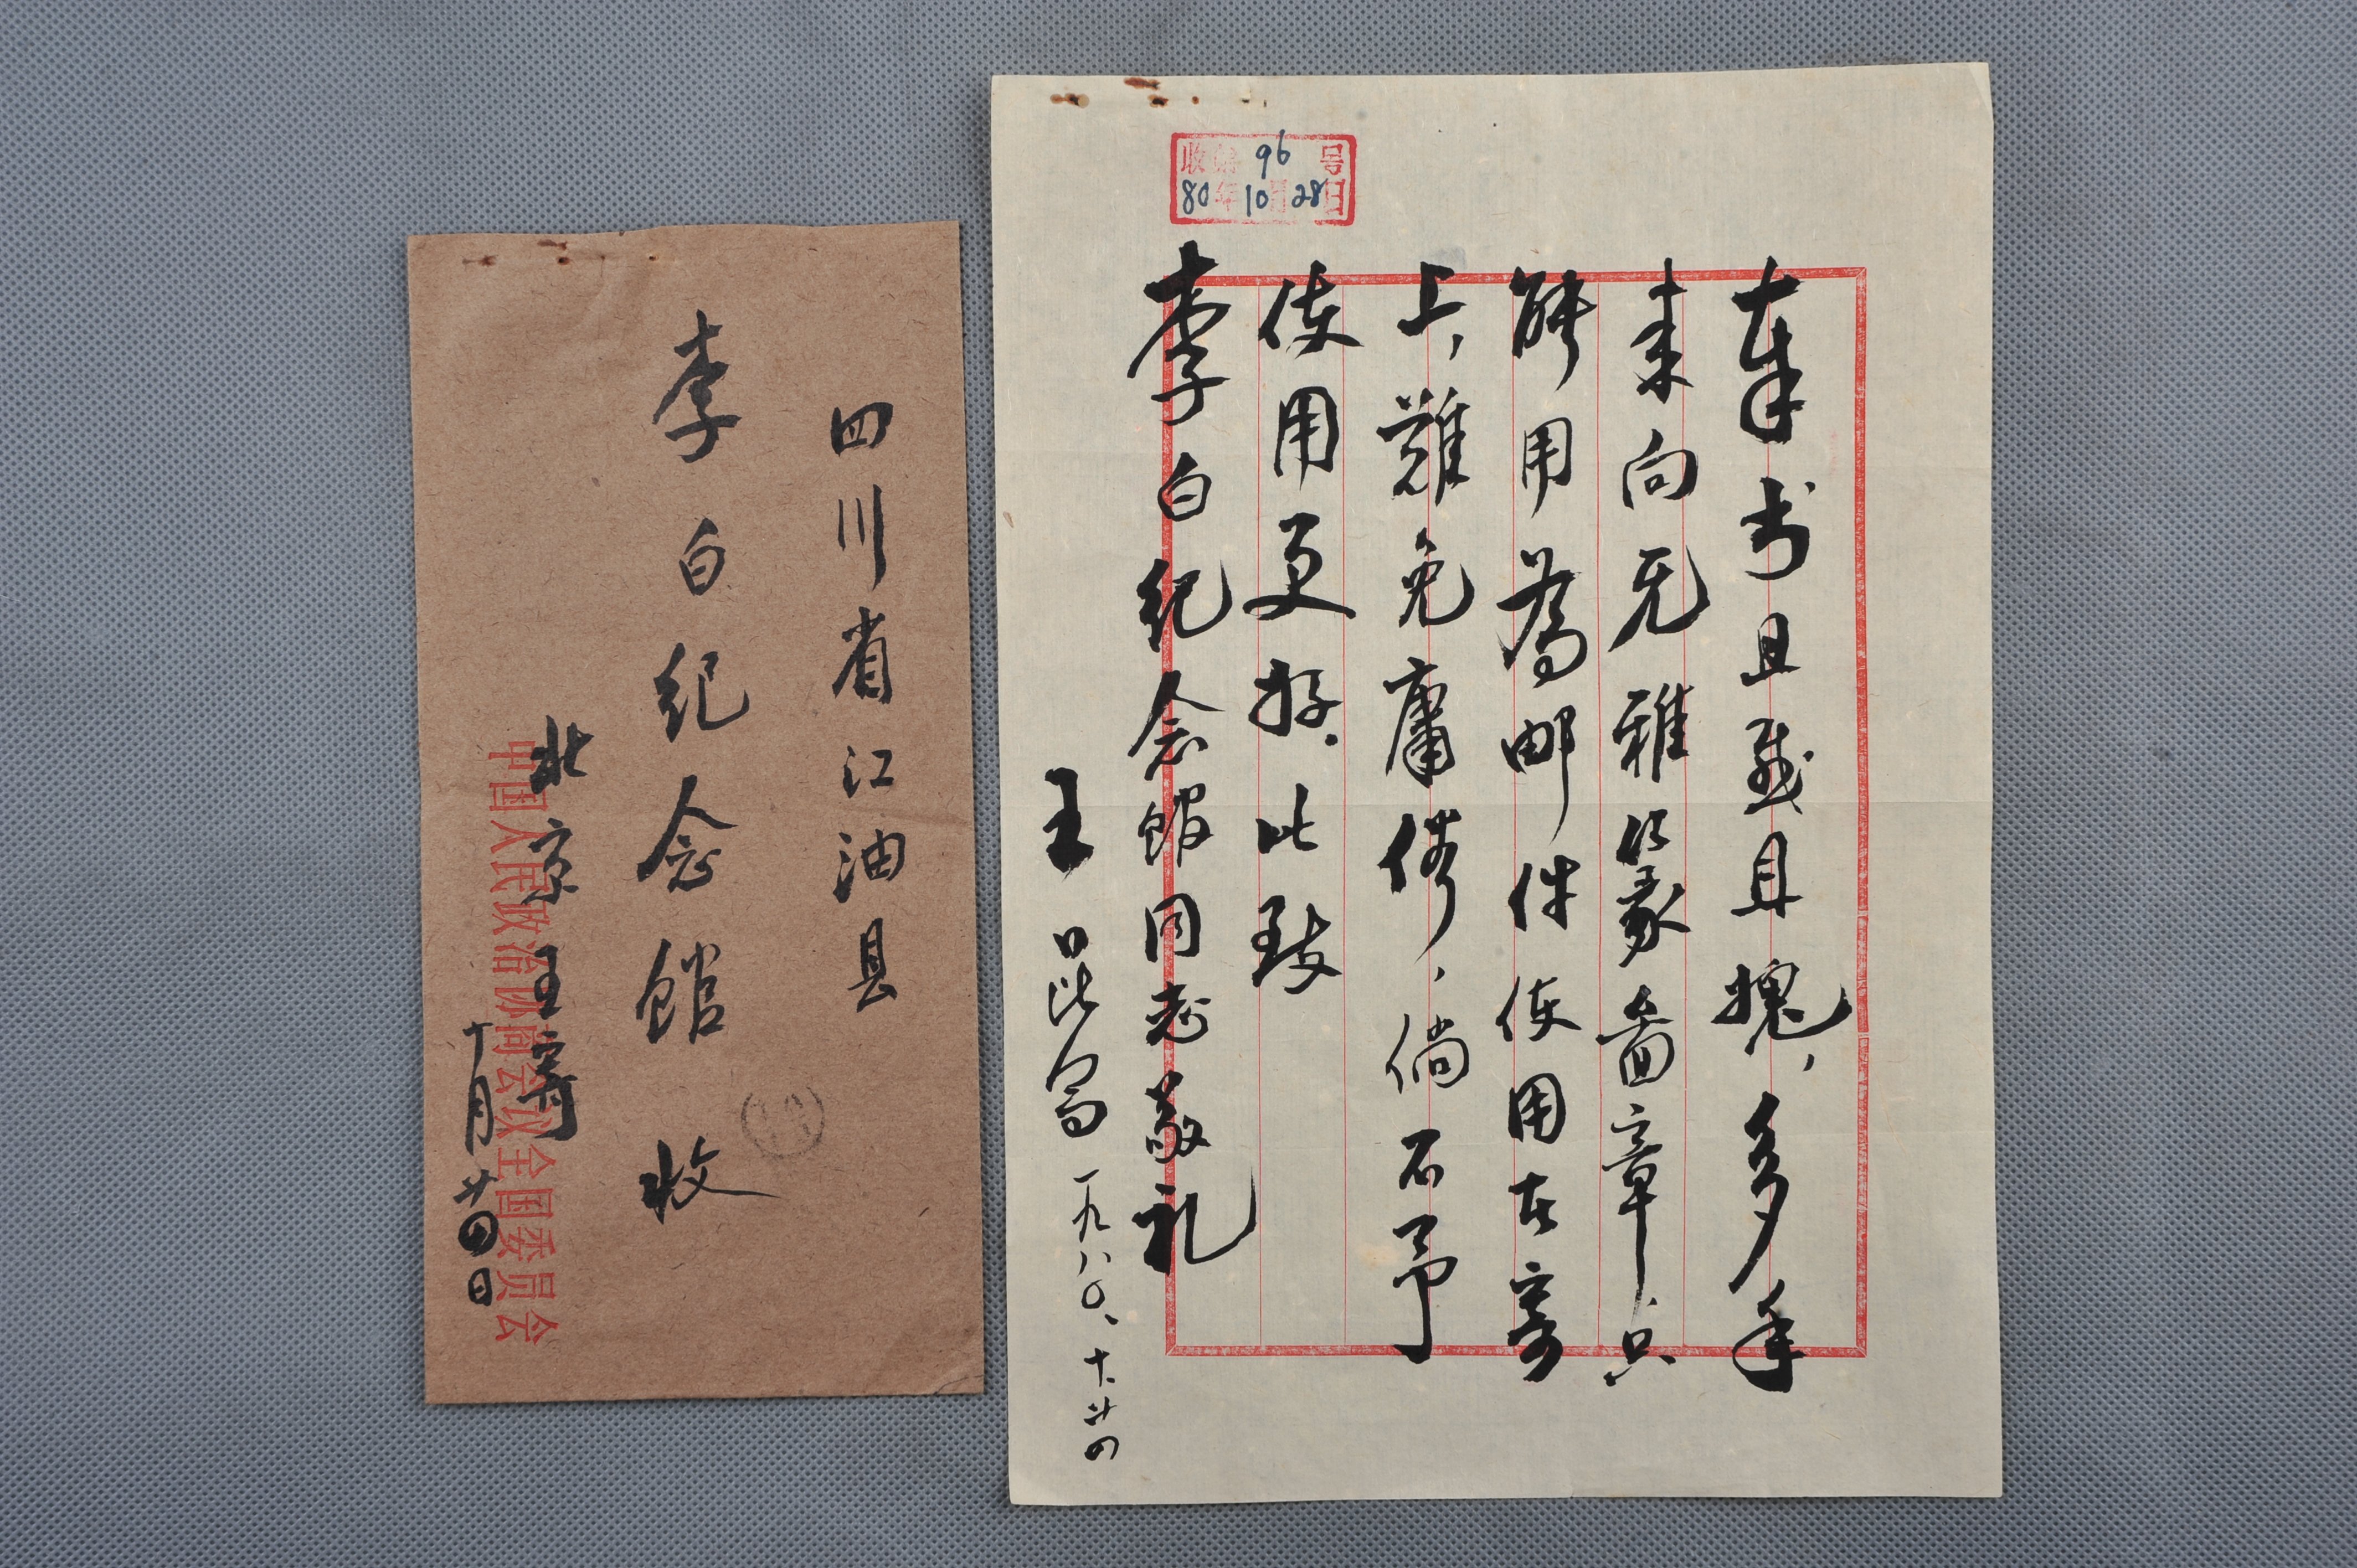 四川省江油县
李白纪念馆 收
北京 王寄
十月廿四日
中国人民政治协商会议全国委员会
收 96 号
80年10月28日
奉书且感且愧，多年
来向无雅篆啚章，只
能用為邮件使用在寄
上，難免庸俗，倘不予
使用更好。此致
李白纪念馆同志敬礼
王昆仑 一九八〇、十、廿四